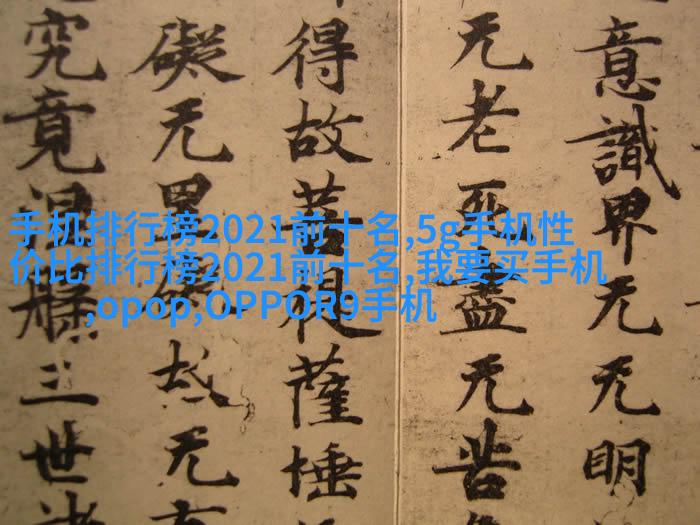 手机排行榜2021前十名,5g手机性
价比排行榜2021前十名,我要买手机
,opop,OPPOR9手机
意識界无无明
无老死盡无苦
得故菩提薩埵
礙无罣礙故无
究竟涅槃三世諸